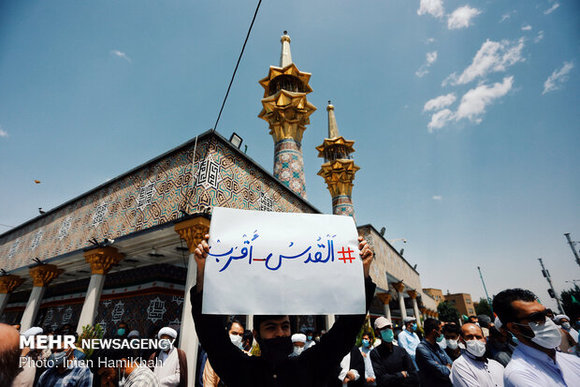 #القُدسُ_أَقرَبُ
MEHR NEWSAGENCY
Photo: Iman HamiKhah